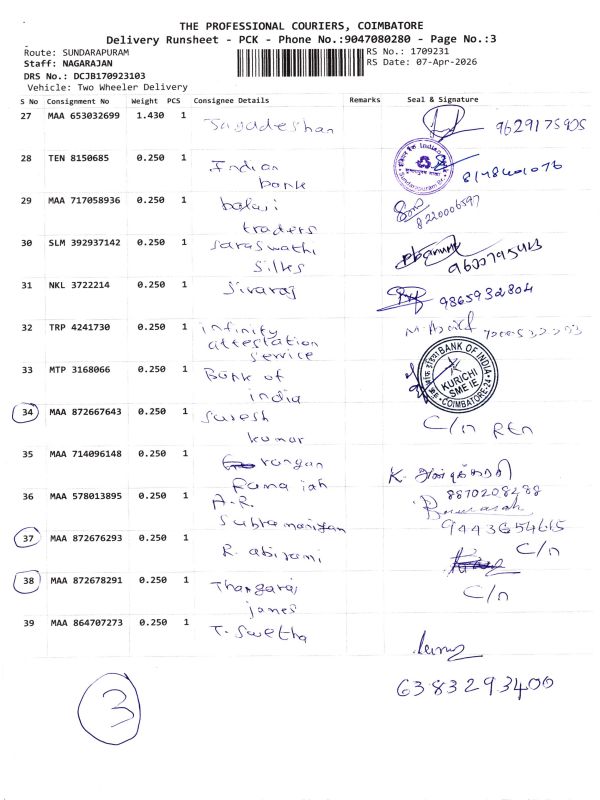 THE PROFESSIONAL COURIERS, COIMBATORE
Delivery Runsheet - PCK - Phone No.:9047080280 - Page No.:3
Route: SUNDARAPURAM
RS No.: 1709231
Staff: NAGARAJAN
RS Date: 07-Apr-2026
DRS No.: DCJB170923103
Vehicle: Two Wheeler Delivery
S No Consignment No Weight PCS Consignee Details Remarks Seal & Signature
27 MAA 653032699 1.430 1 Jagadeshan 9629175905
28 TEN 8150685 0.250 1 Indian
bank
29 MAA 717058936 0.250 1 balaji
traders 8220006597
30 SLM 392937142 0.250 1 Saraswathi
Silks
31 NKL 3722214 0.250 1 Sivaraj 9865932804
32 TRP 4241730 0.250 1 infinity
attestation
service
33 MTP 3168066 0.250 1 Bank of
india
BANK OF INDIA
KURICHI
SME IE
COIMBATORE-24
34 MAA 872667643 0.250 1 Suresh
kumar C/n
35 MAA 714096148 0.250 1 rangan
Rama iah
8870208288
36 MAA 578013895 0.250 1 A.R.
Subramaniyan
9443654615
37 MAA 872676293 0.250 1 R. abirami C/n
38 MAA 872678291 0.250 1 Thangaraj
james C/n
39 MAA 864707273 0.250 1 T. Swetha
6383293400
3